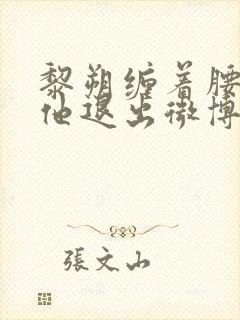 黎朔缠着腰
他退出微博
張文山